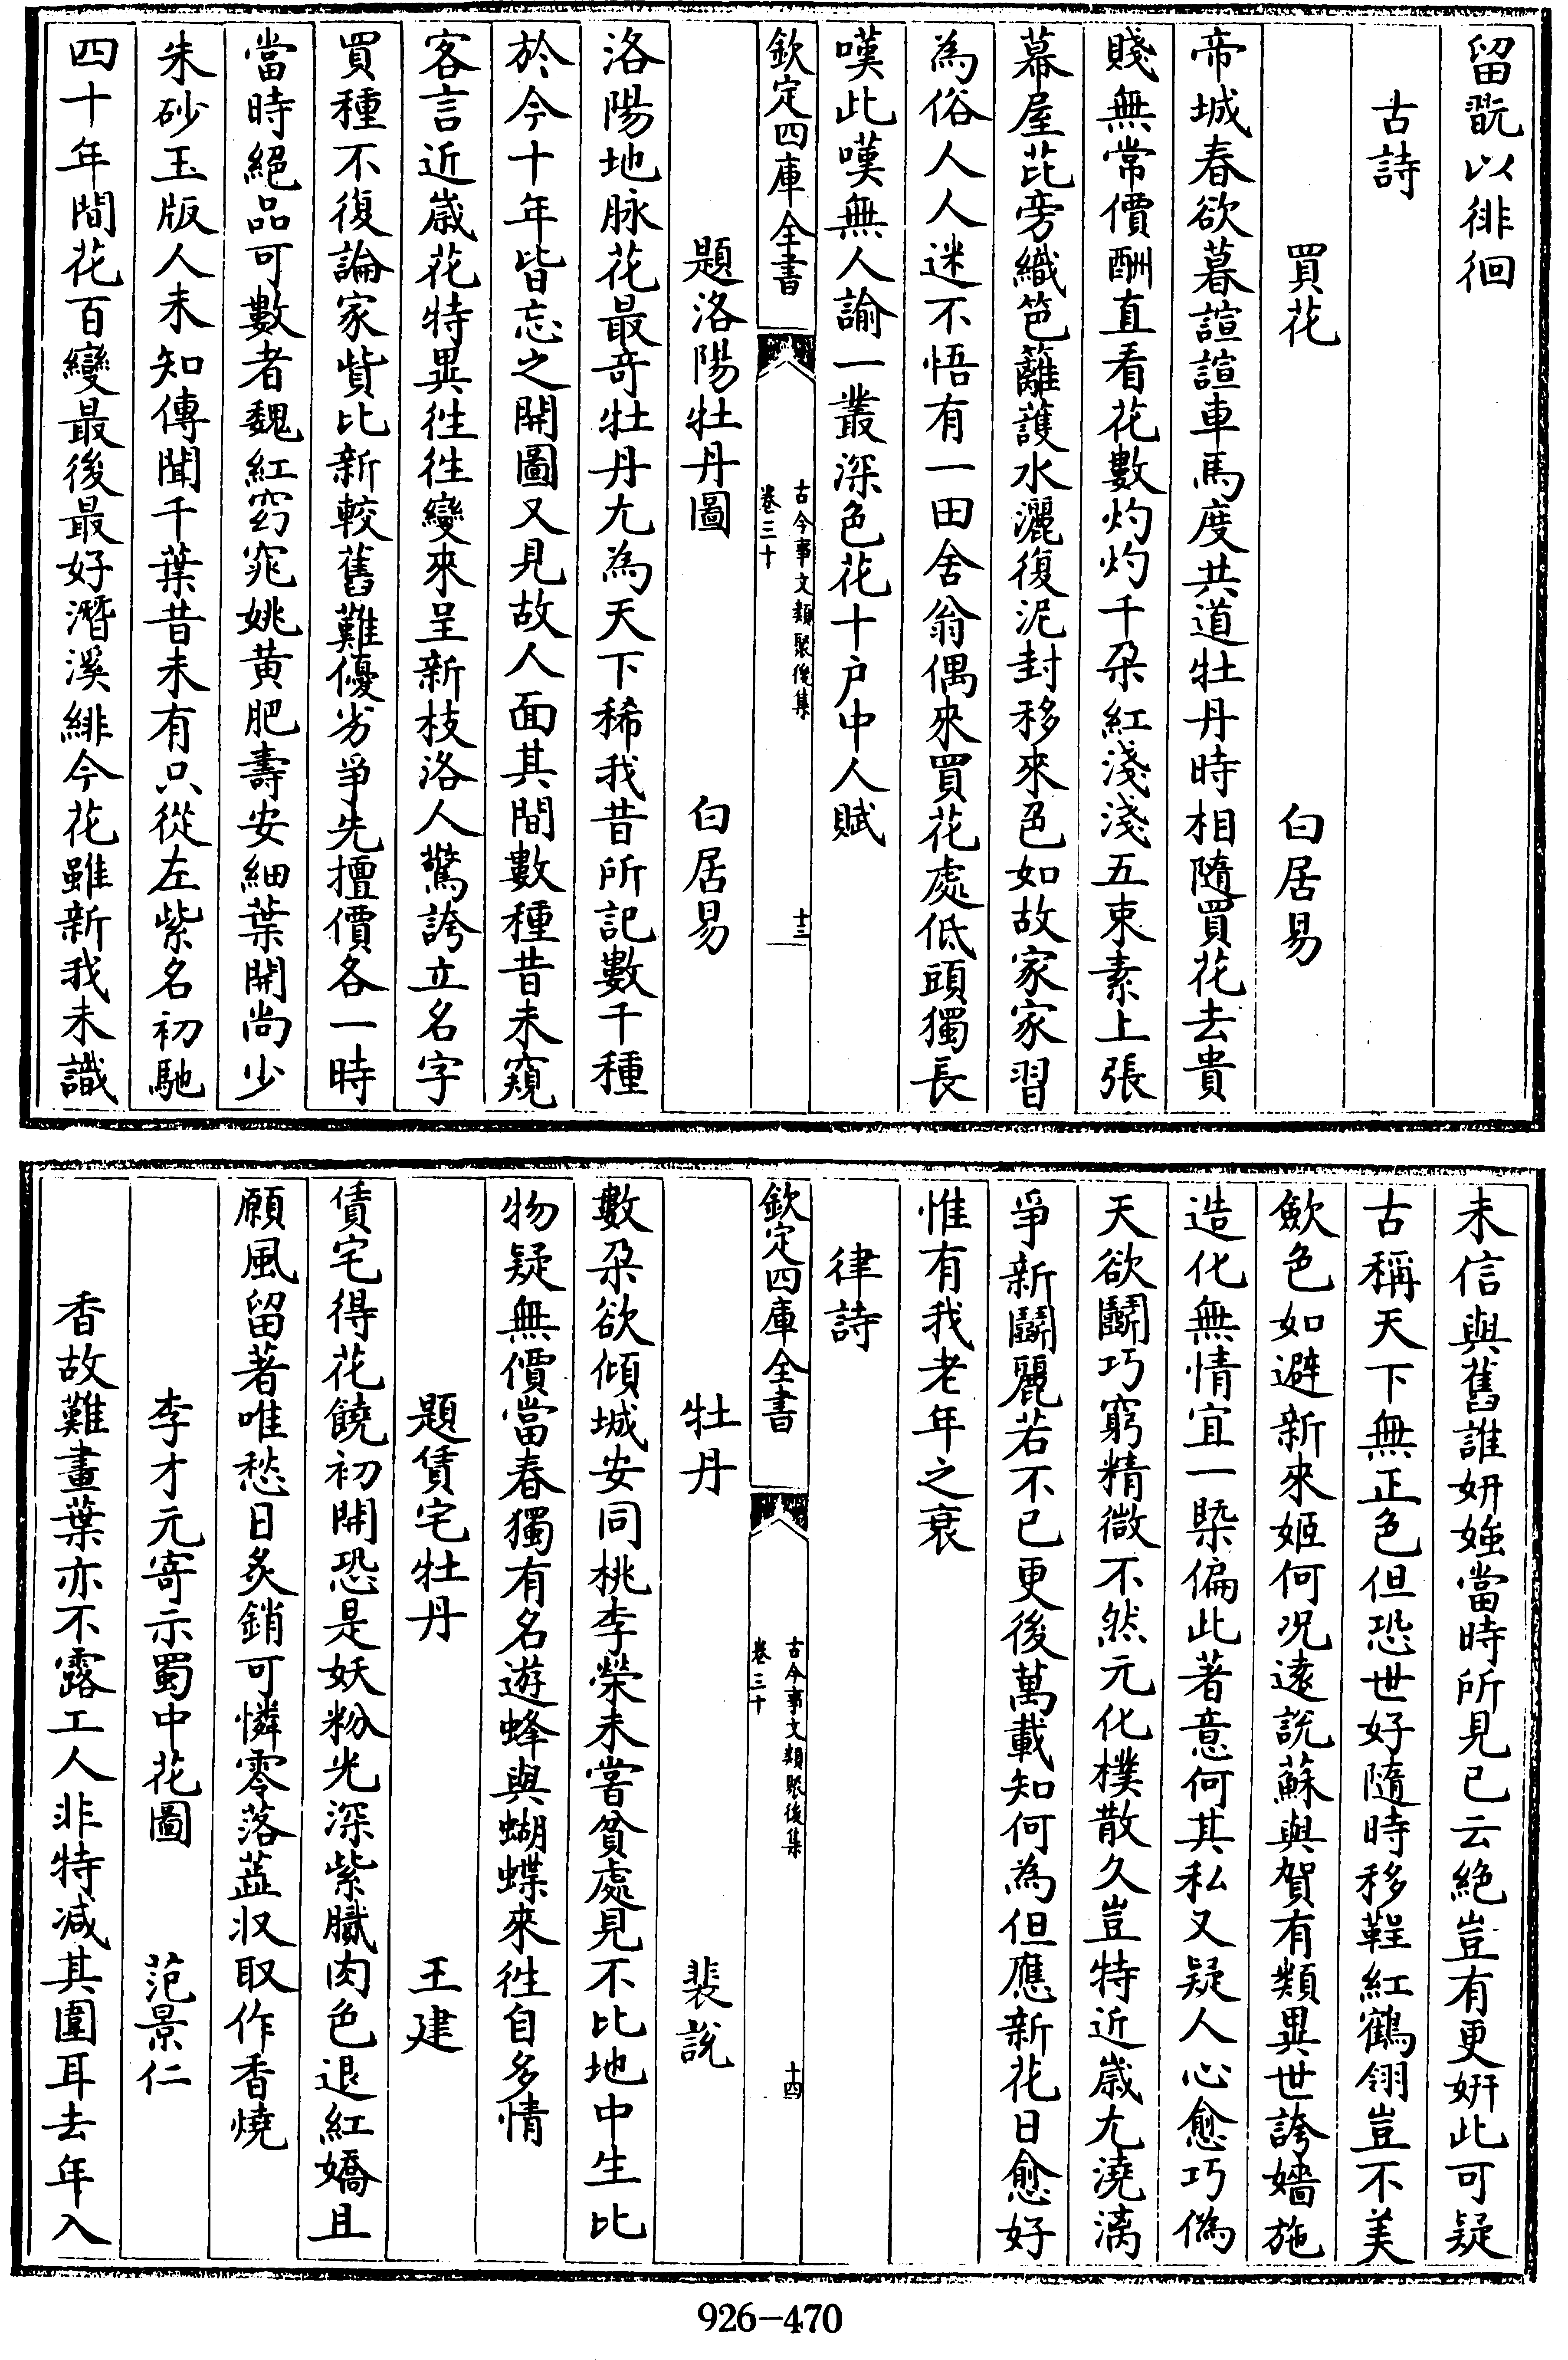 留翫以徘徊
古詩
買花 白居易
帝城春欲暮諠諠車馬度共道牡丹時相隨買花去貴
賤無常價酬直看花數灼灼千朶紅淺淺五束素上張
幕屋芘旁織笆蘺護水灑復泥封移來色如故家家習
為俗人人迷不悟有一田舍翁偶來買花處低頭獨長
嘆此嘆無人諭一叢深色花十户中人賦
欽定四庫全書
古今事文類聚後集
卷三十
十三
題洛陽牡丹圖 白居易
洛陽地脉花最竒牡丹尤為天下稀我昔所記數千種
於今十年皆忘之開圖又見故人面其間數種昔未窺
客言近嵗花特異徃徃變來呈新枝洛人驚誇立名字
買種不復論家貲比新較舊難優劣爭先擅價各一時
當時絕品可數者魏紅窈窕姚黄肥壽安細葉開尚少
朱砂玉版人未知傳聞千葉昔未有只從左紫名初馳
四十年間花百變最後最好潛溪緋今花雖新我未識
未信與舊誰妍媸當時所見已云絶豈有更妍此可疑
古稱天下無正色但恐世好隨時移鞓紅鶴翎豈不美
歛色如避新來姬何况逺說蘇與賀有類異世誇嬙施
造化無情宜一槩偏此著意何其私又疑人心愈巧偽
天欲鬭巧窮精微不然元化樸散久豈特近嵗尤澆漓
爭新鬭麗若不已更後萬載知何為但應新花日愈好
惟有我老年之衰
律詩
欽定四庫全書
古今事文類聚後集
卷三十
十四
牡丹 裴說
數朶欲傾城安同桃李榮未嘗貧處見不比地中生比
物疑無價當春獨有名遊蜂與蝴蝶來徃自多情
題賃宅牡丹 王建
賃宅得花饒初開恐是妖粉光深紫膩肉色退紅嬌且
願風留著唯愁日炙銷可憐零落蕋収取作香燒
李才元寄示蜀中花圖 范景仁
香故難畫葉亦不露工人非特减其圍耳去年入
926-470